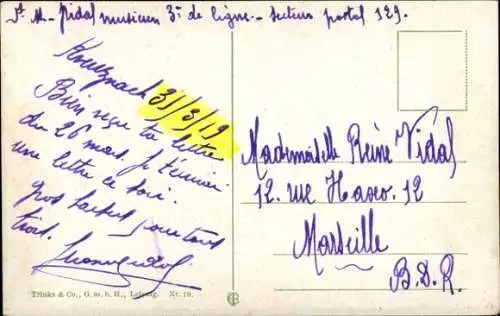 musicien 3e de ligne - secteur postal 129.
Kreuznach 31/3/19
Bien reçu ta lettre
du 26 mars. Je t'écrirai
une lettre ce soir.
Gros baisers pour tous
trois.
Mademoiselle Reine Vidal
12. rue Haxo. 12
Marseille
B.D.R.
Trinks & Co., G.m.b.H., Leipzig. Nr. 10.